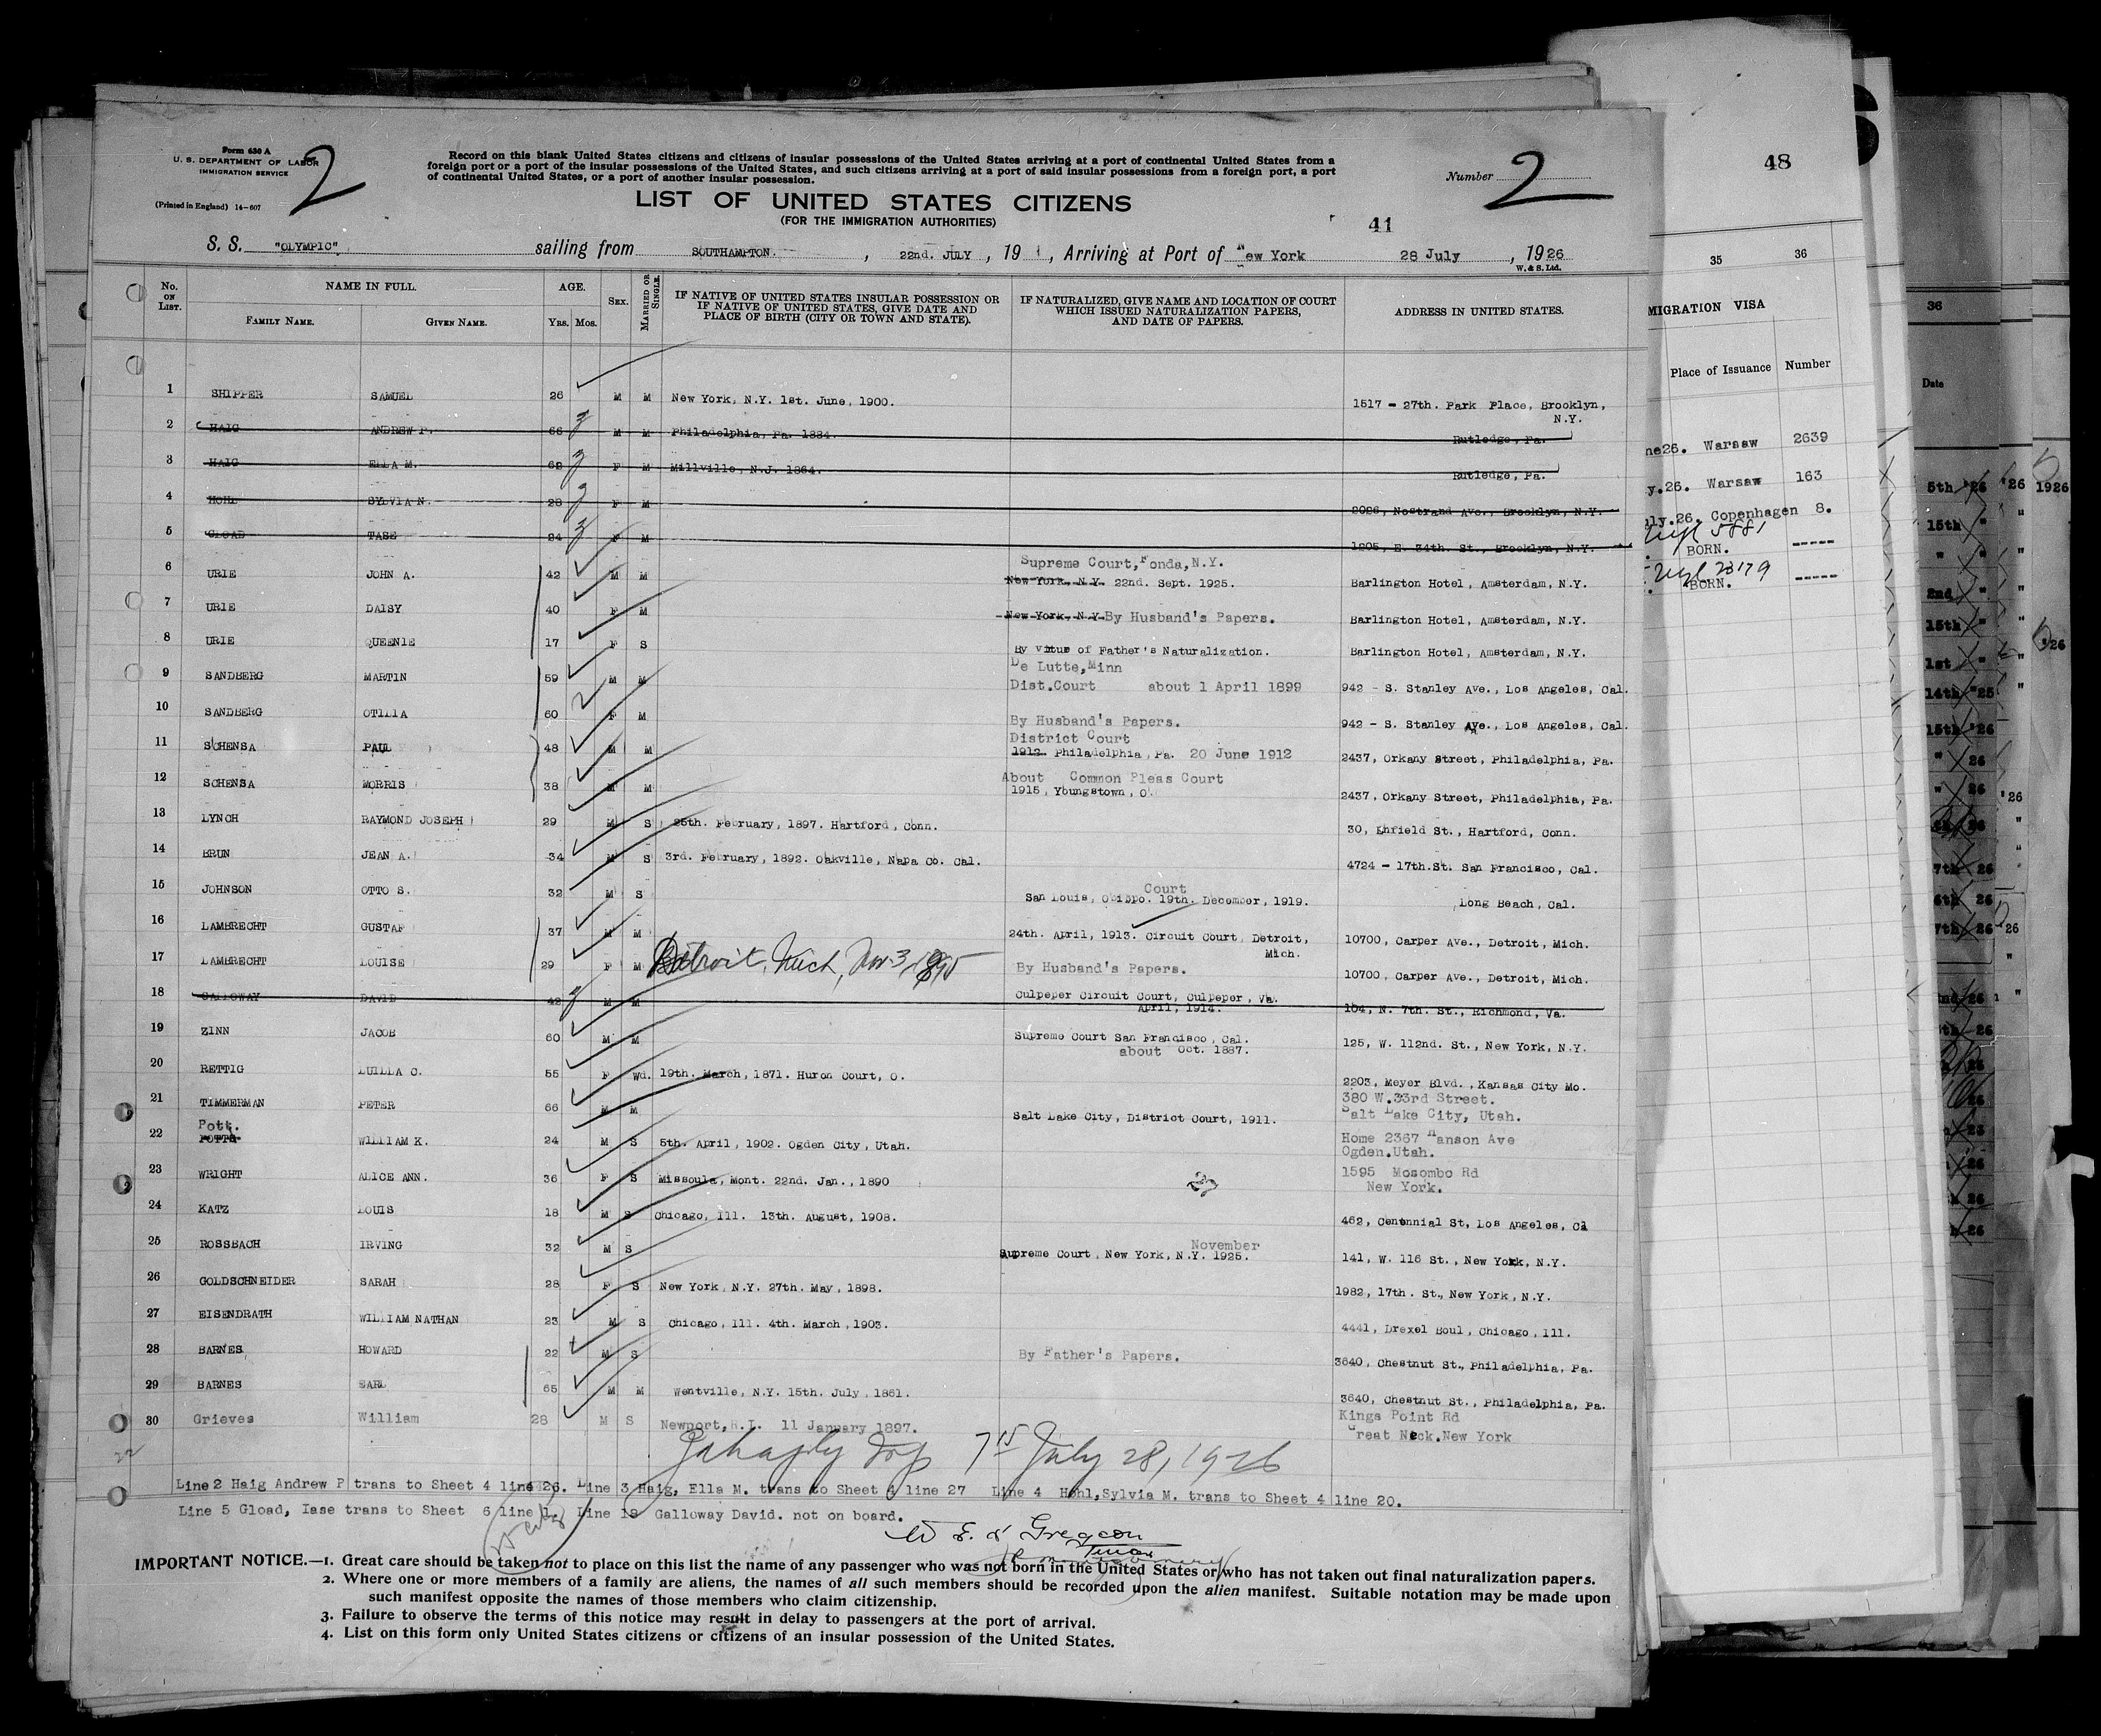 Form 630 A
U. S. DEPARTMENT OF LABOR
IMMIGRATION SERVICE
(Printed in England) 14-607
2
Record on this blank United States citizens and citizens of insular possessions of the United States arriving at a port of continental United States from a
foreign port or a port of the insular possessions of the United States, and such citizens arriving at a port of said insular possessions from a foreign port, a port
of continental United States, or a port of another insular possession.
Number 2
LIST OF UNITED STATES CITIZENS
(FOR THE IMMIGRATION AUTHORITIES)
41
S. S. "OLYMPIC", sailing from SOUTHAMPTON. , 22nd. JULY , 19 , Arriving at Port of New York 28 July , 1926
W. & S. Ltd.
No. ON LIST. NAME IN FULL. AGE. SEX. MARRIED OR SINGLE. IF NATIVE OF UNITED STATES INSULAR POSSESSION OR IF NATIVE OF UNITED STATES, GIVE DATE AND PLACE OF BIRTH (CITY OR TOWN AND STATE). IF NATURALIZED, GIVE NAME AND LOCATION OF COURT WHICH ISSUED NATURALIZATION PAPERS, AND DATE OF PAPERS. ADDRESS IN UNITED STATES.
FAMILY NAME. GIVEN NAME. Yrs. Mos.
1 SHIPPER SAMUEL 26 M M New York, N.Y. 1st. June, 1900. 1517 - 27th. Park Place, Brooklyn, N.Y.
2 HAIG ANDREW P. 66 M M Philadelphia, Pa. 1884. Rutledge, Pa.
3 HAIG ELLA M. 62 F M Millville, N.J. 1864. Rutledge, Pa.
4 HOHL SYLVIA N. 28 F M 2026, Nostrand Ave., Brooklyn, N.Y.
5 GLOAD IASE 24 F M 1205, E. 34th. St., Brooklyn, N.Y.
6 URIE JOHN A. 42 M M Supreme Court, Fonda, N.Y. New York, N.Y. 22nd. Sept. 1925. Barlington Hotel, Amsterdam, N.Y.
7 URIE DAISY 40 F M New York, N.Y. By Husband's Papers. Barlington Hotel, Amsterdam, N.Y.
8 URIE QUEENIE 17 F S By virtue of Father's Naturalization. Barlington Hotel, Amsterdam, N.Y.
9 SANDBERG MARTIN 59 M M De Lutte, Minn Dist. Court about 1 April 1899 942 - S. Stanley Ave., Los Angeles, Cal.
10 SANDBERG OTILIA 60 F M By Husband's Papers. 942 - S. Stanley Ave., Los Angeles, Cal.
11 SCHENSA PAUL 48 M M District Court 1912. Philadelphia, Pa. 20 June 1912 2437, Orkany Street, Philadelphia, Pa.
12 SCHENSA MORRIS 38 M M About Common Pleas Court 1915, Youngstown, O. 2437, Orkany Street, Philadelphia, Pa.
13 LYNCH RAYMOND JOSEPH 29 M S 25th. February, 1897. Hartford, Conn. 30, Enfield St., Hartford, Conn.
14 BRUN JEAN A. 34 M S 3rd. February, 1892. Oakville, Napa Co. Cal. 4724 - 17th.St. San Francisco, Cal.
15 JOHNSON OTTO S. 32 M S San Louis, Obippo. Court 19th. December, 1919. Long Beach, Cal.
16 LAMBRECHT GUSTAF 37 M M 24th. April, 1913. Circuit Court, Detroit, Mich. 10700, Carper Ave., Detroit, Mich.
17 LAMBRECHT LOUISE 29 F M Detroit, Mich, Nov. 3, 1895 By Husband's Papers. 10700, Carper Ave., Detroit, Mich.
18 GALLOWAY DAVID 42 M M Culpeper Circuit Court, Culpeper, Va. April, 1914. 104, N. 7th. St., Richmond, Va.
19 ZINN JACOB 60 M M Supreme Court San Francisco, Cal. about Oct. 1887. 125, W. 112nd. St., New York, N.Y.
20 RETTIG LUILLA C. 55 F Wd. 19th. March, 1871. Huron Court, O. 2203, Meyer Blvd., Kansas City Mo.
21 TIMMERMAN PETER 66 M M Salt Lake City, District Court, 1911. 380 W.33rd Street. Salt Lake City, Utah.
22 Pott. POTTA WILLIAM K. 24 M S 5th. April, 1902. Ogden City, Utah. Home 2367 Hanson Ave Ogden.Utah.
23 WRIGHT ALICE ANN. 36 F S Missoula, Mont. 22nd. Jan., 1890 1595 Mosombo Rd New York.
24 KATZ LOUIS 18 M S Chicago, Ill. 13th. August, 1908. 462, Centnnial St, Los Angeles, Cl
25 ROSSBACH IRVING 32 M S Supreme Court, New York, N.Y. November 1925. 141, W. 116 St., New York, N.Y.
26 GOLDSCHNEIDER SARAH 28 F S New York, N.Y. 27th. May, 1898. 1982, 17th. St., New York, N.Y.
27 EISENDRATH WILLIAM NATHAN 23 M S Chicago, Ill. 4th. March, 1903. 4441, Drexel Boul, Chicago, Ill.
28 BARNES HOWARD 22 M S By Father's Papers. 3640, Chestnut St., Philadelphia, Pa.
29 BARNES EARL 65 M M Wentville, N.Y. 15th. July, 1861. 3640, Chestnut St., Philadelphia, Pa.
30 Grieves William 28 M S Newport, R.I. 11 January 1897. Kings Point Rd Great Neck.New York
July 28, 1926
Line 2 Haig Andrew P trans to Sheet 4 line 26. Line 3 Haig, Ella M. trans to Sheet 4 line 27 Line 4 Hohl,Sylvia M. trans to Sheet 4 line 20.
Line 5 Gload, Iase trans to Sheet 6 line 1. Line 18 Galloway David. not on board.
IMPORTANT NOTICE.—1. Great care should be taken not to place on this list the name of any passenger who was not born in the United States or who has not taken out final naturalization papers.
2. Where one or more members of a family are aliens, the names of all such members should be recorded upon the alien manifest. Suitable notation may be made upon
such manifest opposite the names of those members who claim citizenship.
3. Failure to observe the terms of this notice may result in delay to passengers at the port of arrival.
4. List on this form only United States citizens or citizens of an insular possession of the United States.
48
35 36
MIGRATION VISA
Place of Issuance Number
ne26. Warsaw 2639
y.26. Warsaw 163
ly.26. Copenhagen 8.
5881
BORN. -----
23179
BORN. -----
36
Date
5th '26 '26 1926
15th "
2nd "
15th "
1st "
14th '25 "
15th '26